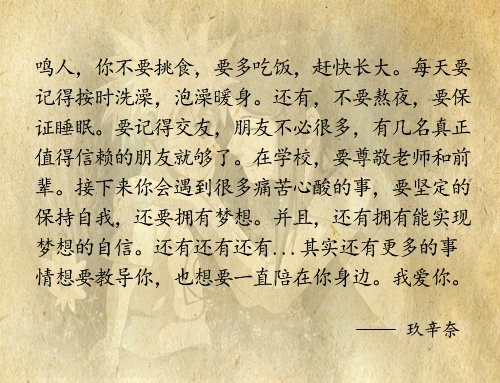 鸣人，你不要挑食，要多吃饭，赶快长大。每天要
记得按时洗澡，泡澡暖身。还有，不要熬夜，要保
证睡眠。要记得交友，朋友不必很多，有几名真正
值得信赖的朋友就够了。在学校，要尊敬老师和前
辈。接下来你会遇到很多痛苦心酸的事，要坚定的
保持自我，还要拥有梦想。并且，还有拥有能实现
梦想的自信。还有还有还有...其实还有更多的事
情想要教导你，也想要一直陪在你身边。我爱你。
—— 玖辛奈